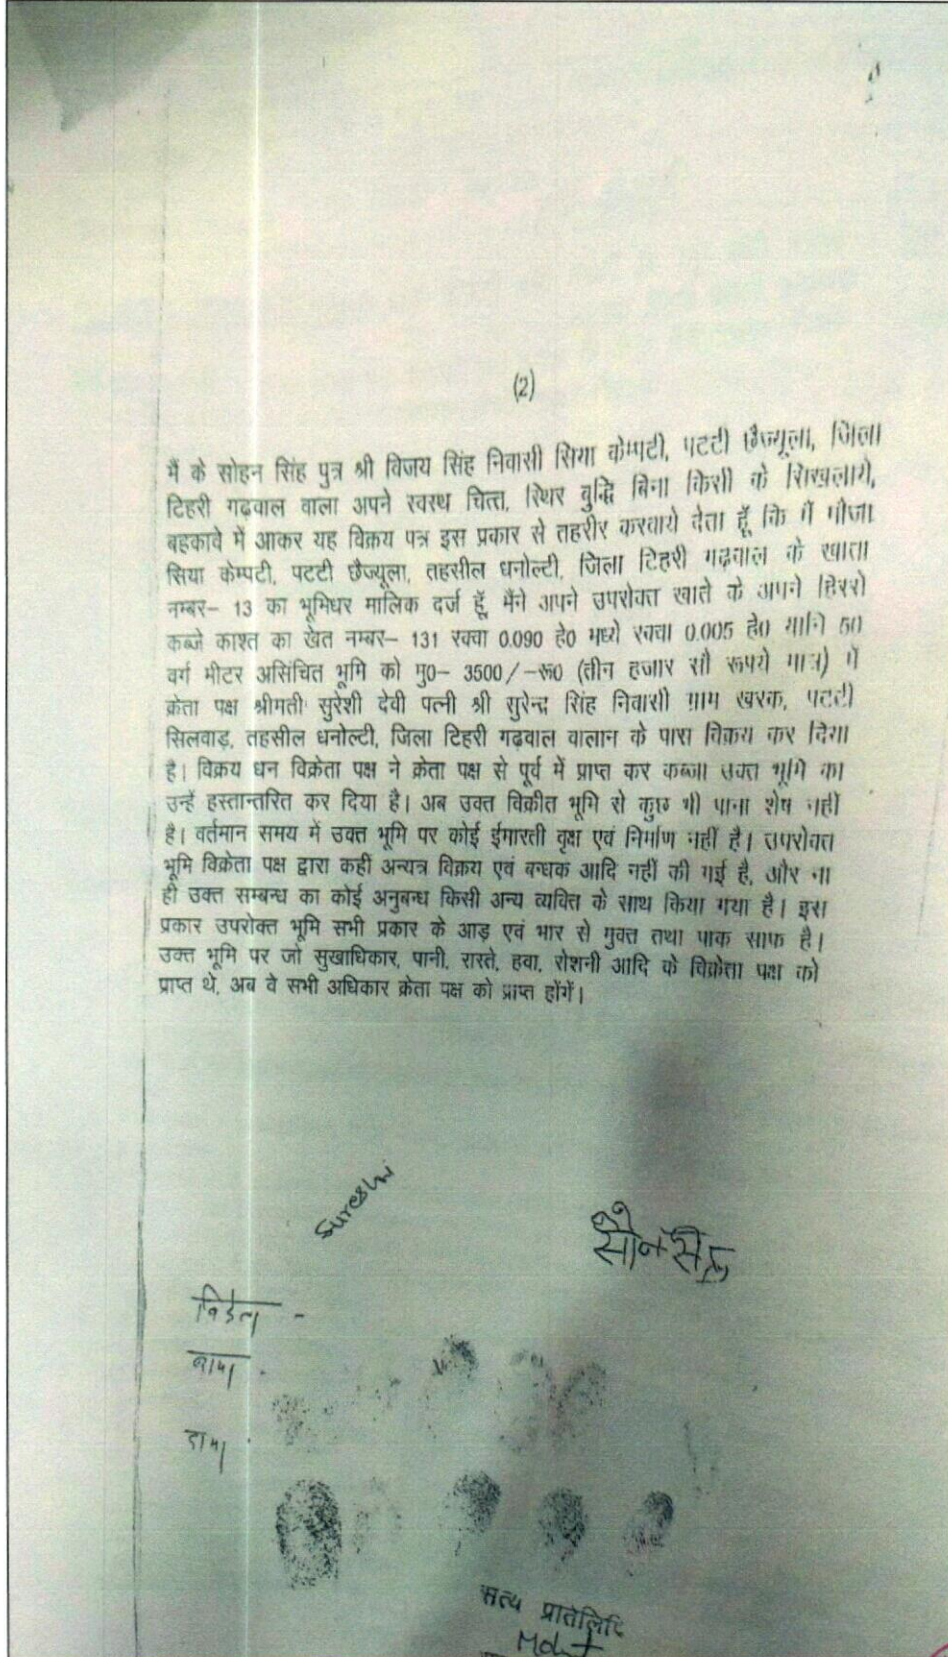 (2)
मैं के सोहन सिंह पुत्र श्री विजय सिंह निवासी सिया केम्पटी, पटटी छैज्यूला, जिला
टिहरी गढवाल वाला अपने स्वस्थ चित्त, स्थिर बुद्धि बिना किसी के सिखलाये,
बहकावे में आकर यह विक्रय पत्र इस प्रकार से तहरीर करवाये देता हूँ कि मैं मौजा
सिया केम्पटी, पटटी छैज्यूला, तहसील धनोल्टी, जिला टिहरी गढ़वाल के खाता
नम्बर– 13 का भूमिधर मालिक दर्ज हूँ, मैंने अपने उपरोक्त खाते के अपने हिस्से
कब्जे काश्त का खेत नम्बर– 131 रक्वा 0.090 हे0 मध्ये रक्वा 0.005 हे0 यानि 50
वर्ग मीटर असिंचित भूमि को मु0– 3500/–रू0 (तीन हजार सौ रूपये मात्र) में
क्रेता पक्ष श्रीमती सुरेशी देवी पत्नी श्री सुरेन्द्र सिंह निवासी ग्राम खरक, पटटी
सिलवाड़, तहसील धनोल्टी, जिला टिहरी गढवाल वालान के पास विक्रय कर दिया
है। विक्रय धन विक्रेता पक्ष ने क्रेता पक्ष से पूर्व में प्राप्त कर कब्जा उक्त भूमि का
उन्हें हस्तान्तरित कर दिया है। अब उक्त विक्रीत भूमि से कुछ भी पाना शेष नहीं
है। वर्तमान समय में उक्त भूमि पर कोई ईमारती वृक्ष एवं निर्माण नहीं है। उपरोक्त
भूमि विक्रेता पक्ष द्वारा कहीं अन्यत्र विक्रय एवं बन्धक आदि नहीं की गई है, और ना
ही उक्त सम्बन्ध का कोई अनुबन्ध किसी अन्य व्यक्ति के साथ किया गया है। इस
प्रकार उपरोक्त भूमि सभी प्रकार के आड़ एवं भार से मुक्त तथा पाक साफ है।
उक्त भूमि पर जो सुखाधिकार, पानी, रास्ते, हवा, रोशनी आदि के विक्रेता पक्ष को
प्राप्त थे, अब वे सभी अधिकार क्रेता पक्ष को प्राप्त होंगें।
Sureshi
बाया
दाया
सत्य प्रतिलिपि